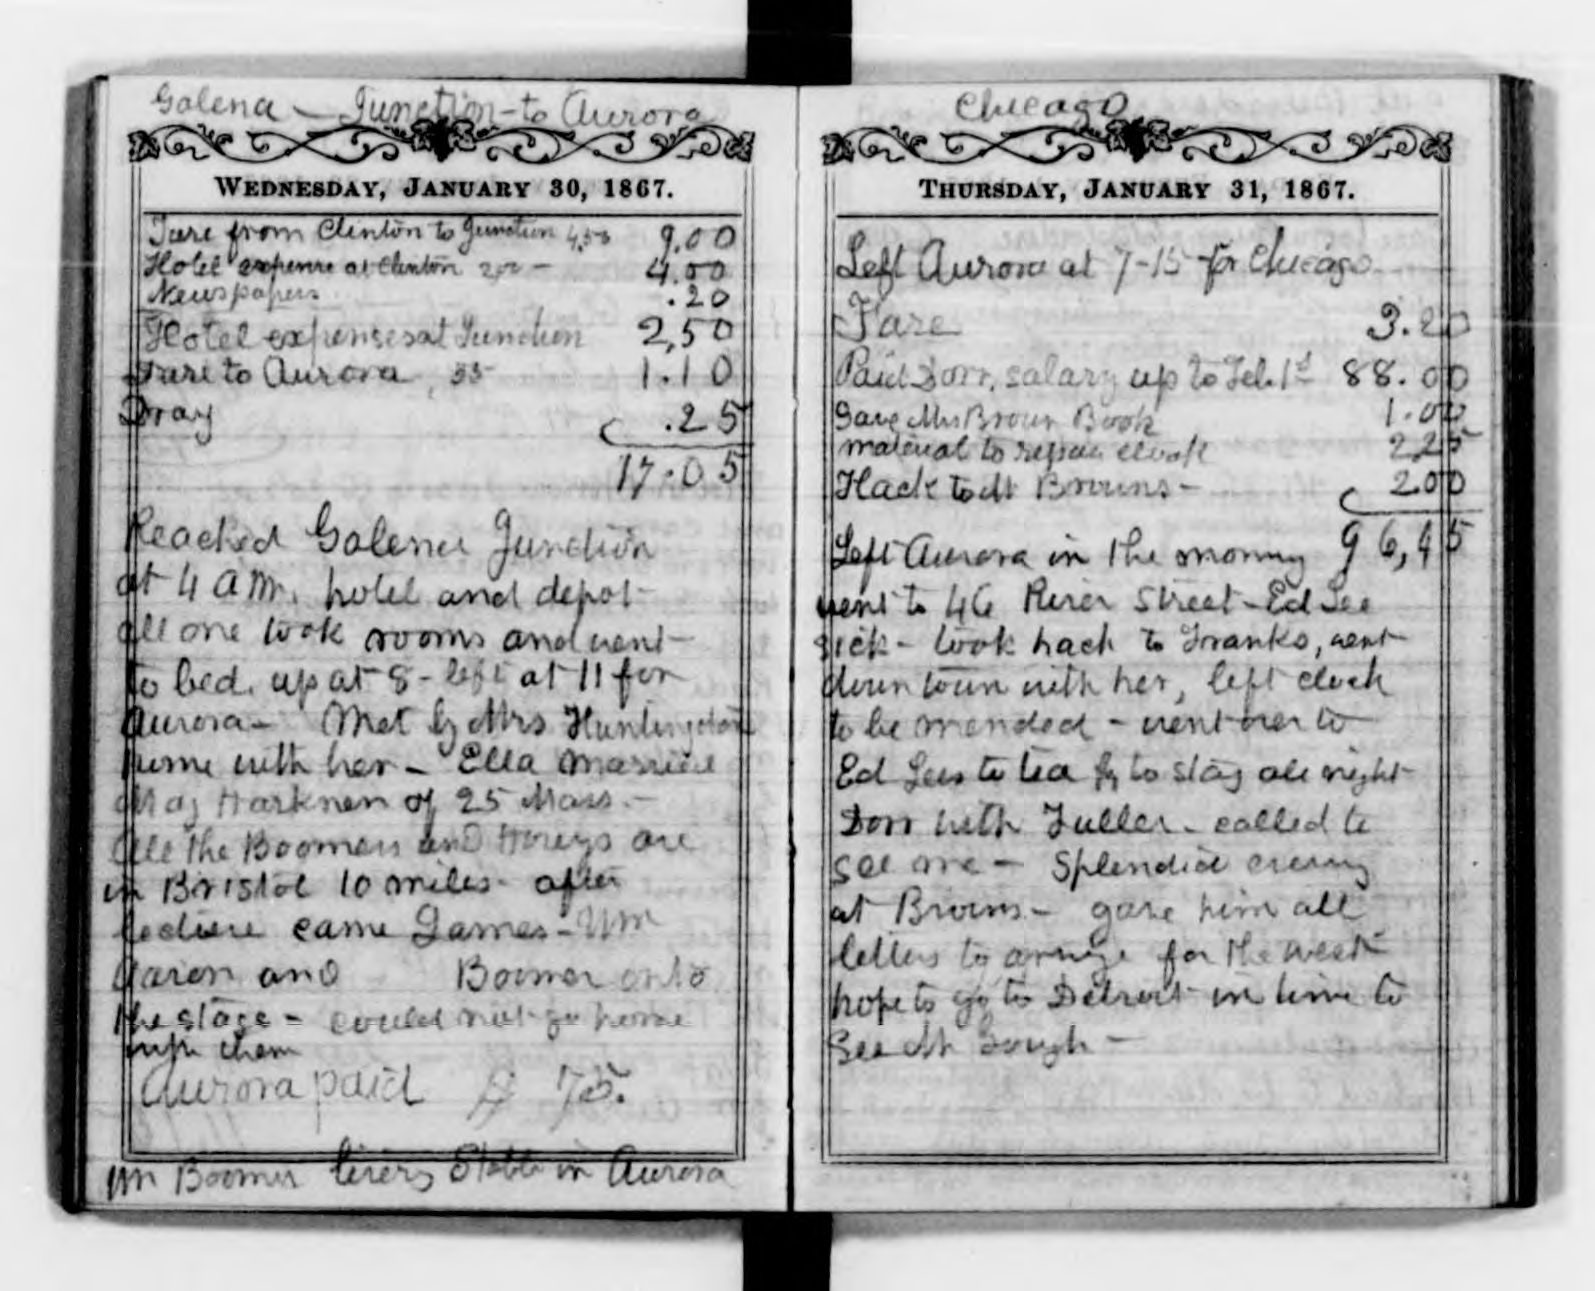 Galena - Junction - to Aurora
WEDNESDAY, JANUARY 30, 1867.
Fare from Clinton to Junction 4,50 9.00
Hotel expense at Clinton 2,00 - 4.00
Newspapers .20
Hotel expenses at Junction 2,50
Fare to Aurora, 55 1.10
Dray .25
17.05
Reached Galena Junction
at 4 A M. hotel and depot
all one took rooms and went
to bed. up at 8 - left at 11 for
Aurora - Met by Mrs Huntington
home with her - Ella married
Maj Harknen of 25 Mass. -
All the Boomers and Hoveys are
in Bristol 10 miles - after
lecture came James - Wm
Aaron and Boomer onto
the stage - could not go home
with them
Aurora paid $ 75.
Wm Boomer livery Stable in Aurora
Chicago
THURSDAY, JANUARY 31, 1867.
Left Aurora at 7-15 for Chicago
Fare 3.20
Paid Dorr, salary up to Feb. 1st 88.00
Gave Mrs Brown Book 1.00
material to repair cloak 225
Hack to Mr Browns - 200
Left Aurora in the morning 96,45
went to 46 River Street - Ed Lee
sick - took hack to Franks, went
down town with her, left clock
to be mended - went over to
Ed Lees to tea & to stay all night
Dorr with Fuller - called to
see me - Splendid evening
at Browns - gave him all
letters to arrange for the week
hope to go to Detroit in time to
See Mr Gough -